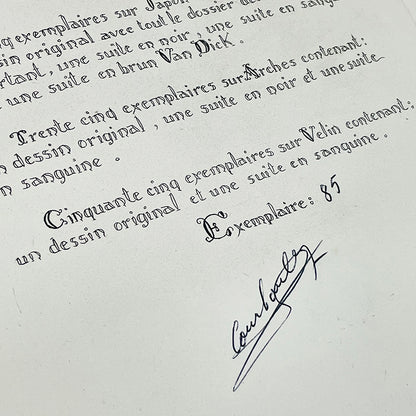 cinq exemplaires sur Japon
dessin original avec tout le dossier de
rtant, une suite en noir, une suite en sangu
une suite en brun Van Dick.
Trente cinq exemplaires sur Arches contenant:
n dessin original, une suite en noir et une suite
n sanguine.
Cinquante cinq exemplaires sur Vélin contenant:
un dessin original et une suite en sanguine.
Exemplaire: 85